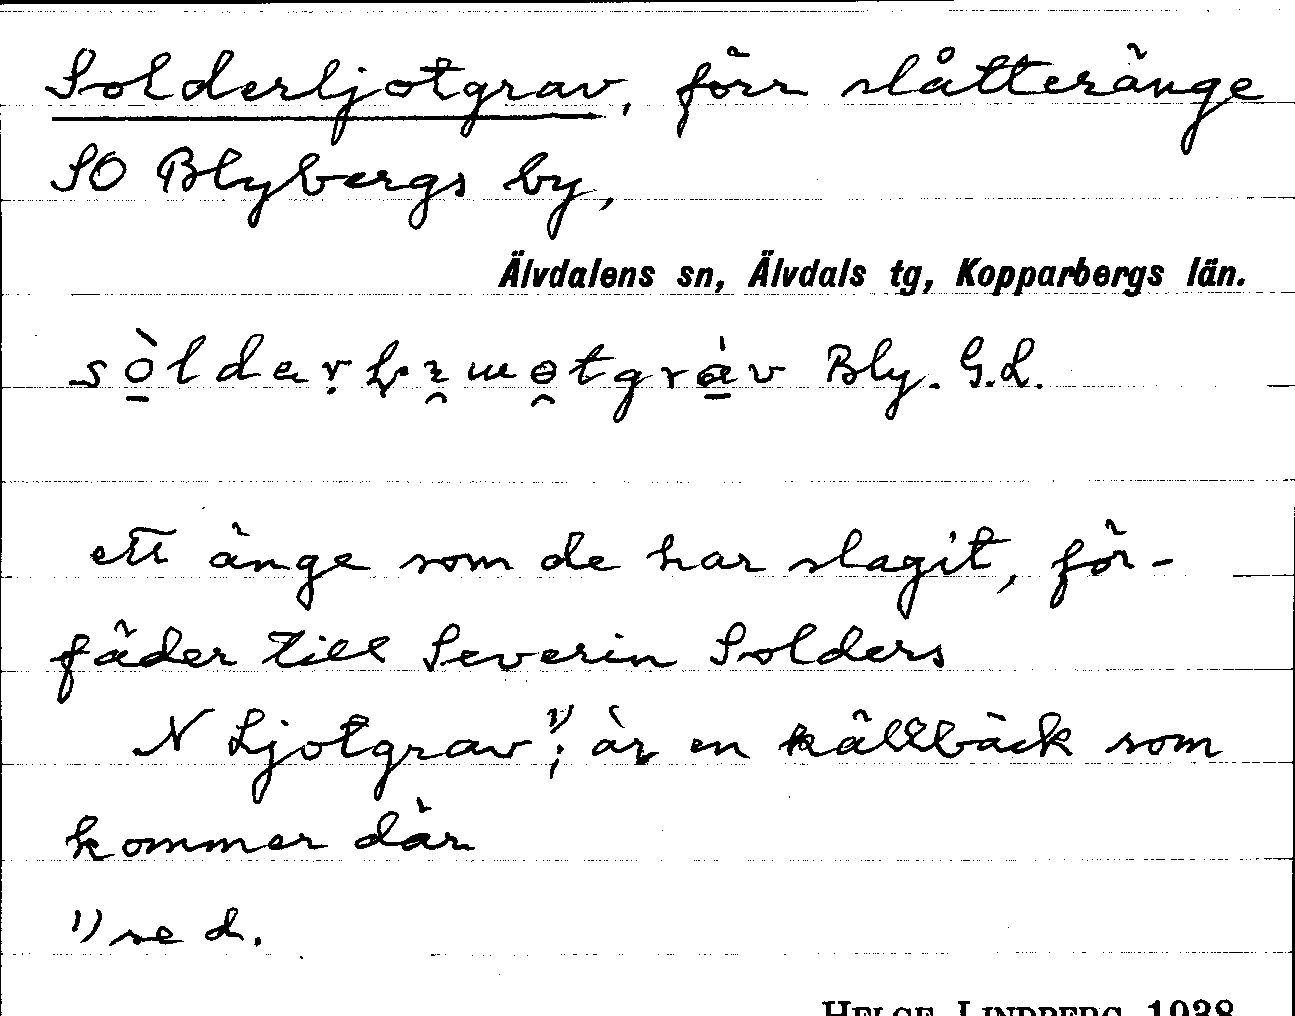 Solderljotgrav, förr slåtteränge
SO Blybergs by,
Älvdalens sn, Älvdals tg, Kopparbergs län.
Bly. G.L.
ett änge som de har slagit, för-
fäder till Severin Solders
N Ljotgrav¹⁾, är en källbäck som
kommer där
¹⁾ se d.
HELGE LINDBERG 1938